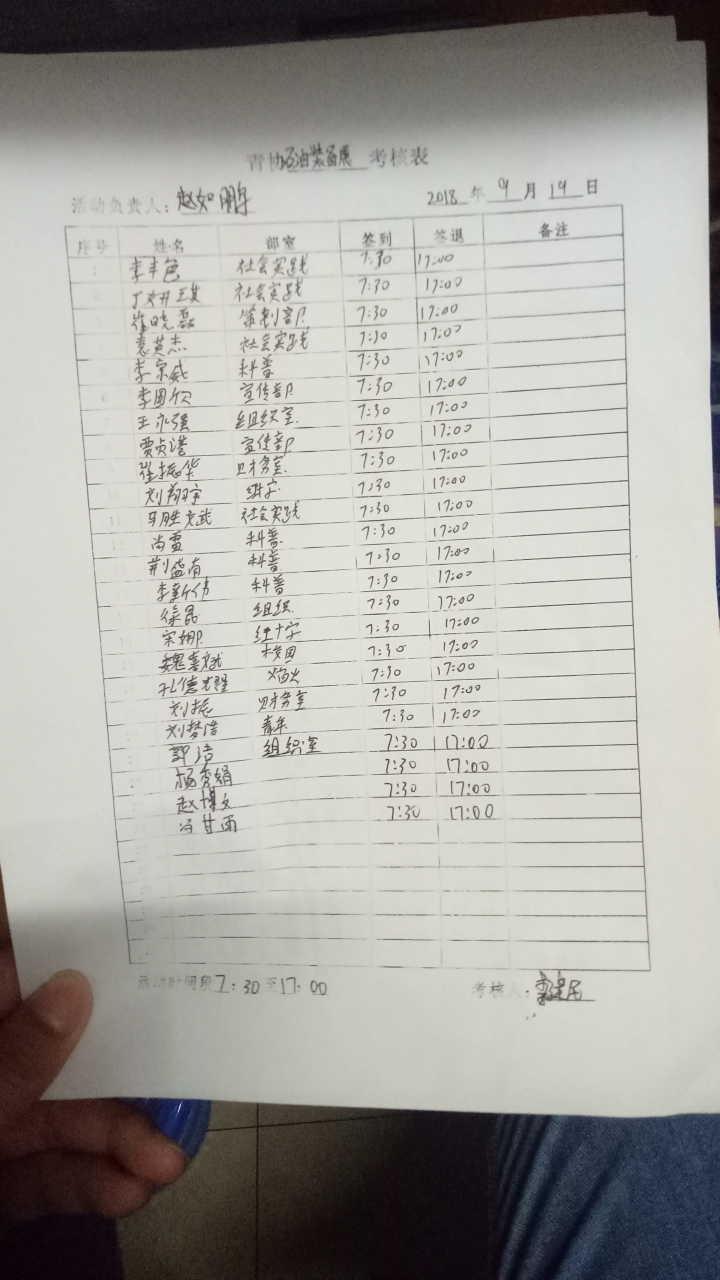 青协石油装备展 考核表
活动负责人：赵如鹏 2018 年 9 月 19 日
序号 姓名 部室 签到 签退 备注
李丰色 社会实践 7:30 17:00
社会实践 7:30 17:00
崔晓磊 策划部 7:30 17:00
袁英杰 社会实践 7:30 17:00
李京威 科普 7:30 17:00
李国欣 宣传部 7:30 17:00
王永强 组织室 7:30 17:00
贾贞浩 宣传部 7:30 17:00
崔振华 财务室 7:30 17:00
刘翔宇 7:30 17:00
马胜文武 社会实践 7:30 17:00
尚雪 科普 7:30 17:00
荆盛有 科普 7:30 17:00
李新伟 科普 7:30 17:00
徐昂 组织 7:30 17:00
宋娜 红十字 7:30 17:00
魏喜斌 校团 7:30 17:00
孔德耀 焰火 7:30 17:00
刘振 财务室 7:30 17:00
刘梦浩 青年 7:30 17:00
郭洁 组织室 7:30 17:00
杨秀娟 7:30 17:00
赵博文 7:30 17:00
冯甘雨 7:30 17:00
活动时间段7:30至17:00 考核人：